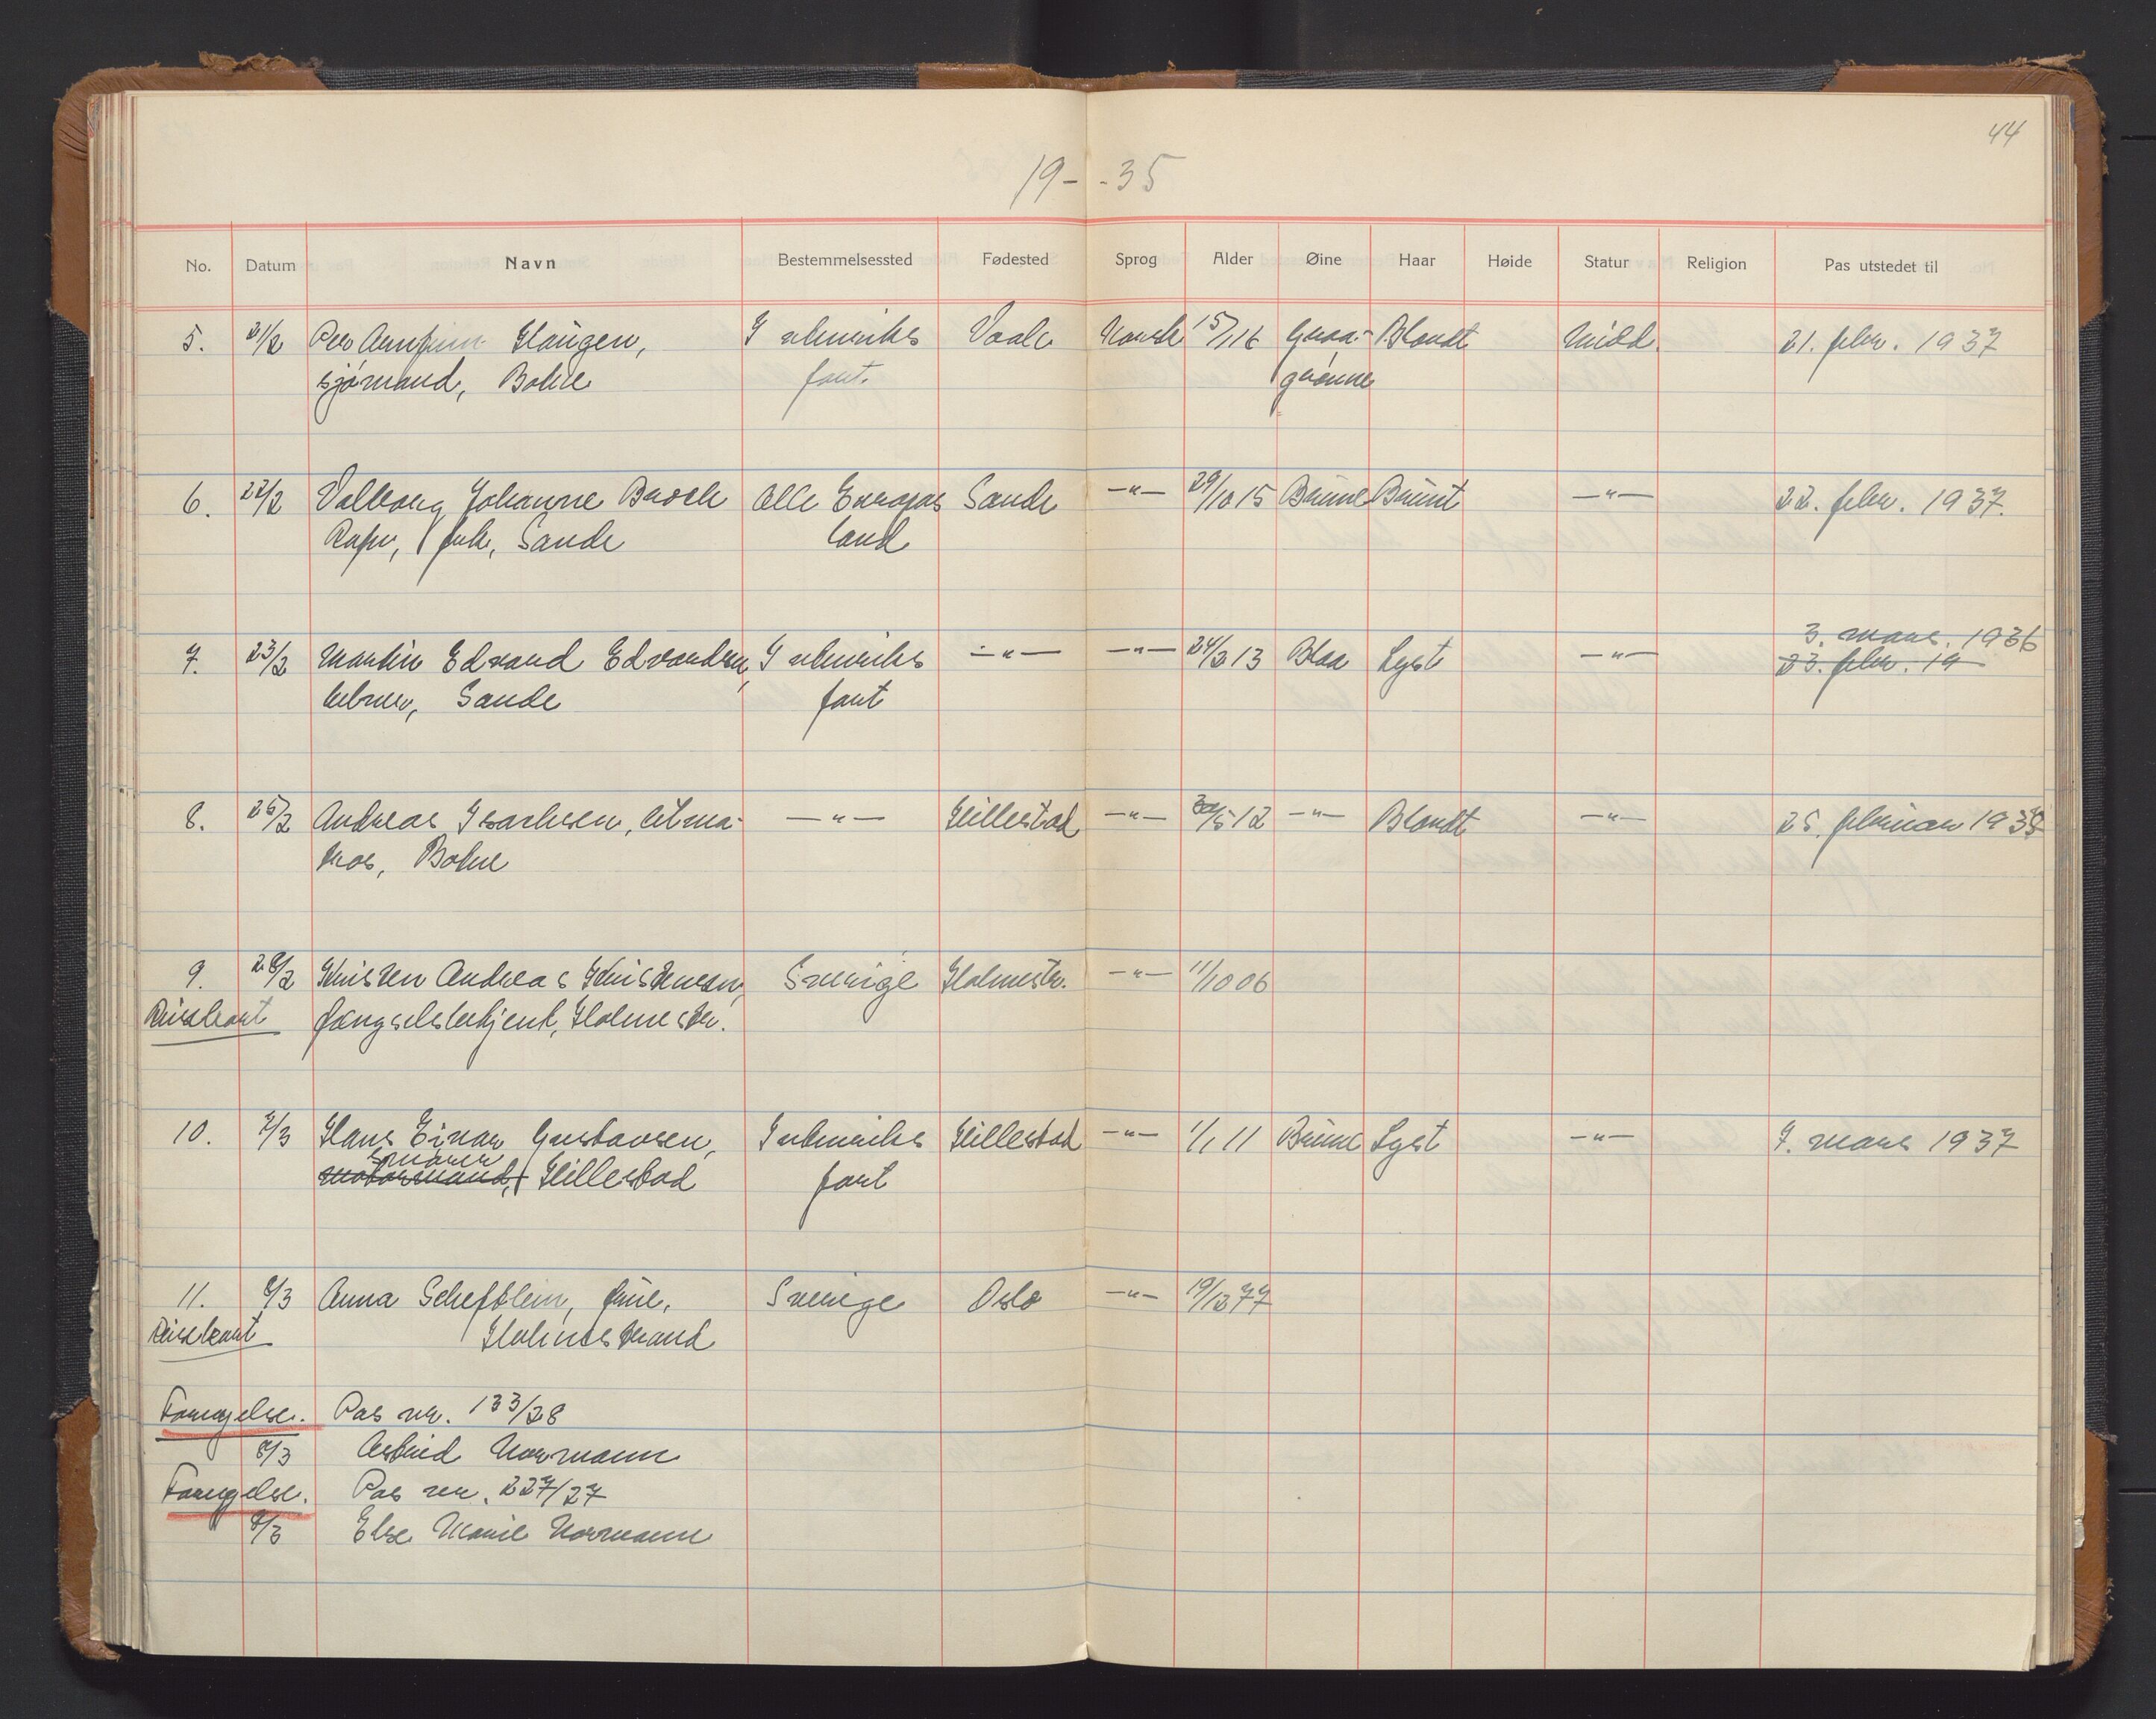 44
19 - - 35
No. Datum Navn Bestemmelsessted Fødested Sprog Alder Øine Haar Høide Statur Religion Pas utstedet til
5. 21/2 Per Arnfinn Haugen, I utenriks Vaale Norsk 15/1 16 Graa- Blondt Midd. 21. febr. 1937
sjømand, Botne fart. grønne
6. 22/2 Valborg Johanne Broch Alle Europas Sande —"— 29/10 15 Brune Brunt —"— 22. febr. 1937.
frk, Sande land
3. mars. 1936
7. 23/2 Martin Edvard Edvardsen, I utenriks —"— —"— 24/2 13 Blaa Lyst —"— 23. febr. 19
Sande fart
8. 25/2 Andreas Isachsen, —"— Hillestad —"— 30/5 12 —"— Blondt —"— 25. februar 193
Botne
9. 28/2 Kristen Andreas Kristensen, Sverige Holmestr. —"— 11/10 06
Reisekort fængselsbetjent, Holmestr.
10. 7/3 Hans Einar Gustavsen, I utenriks Hillestad —"— 1/1 11 Brune Lyst —"— 7. mars 1937
smører
motormand, Hillestad fart
11. 8/3 Anna Scheflein, frue, Sverige Oslo —"— 19/12 77
Reisekort Holmestrand
Fornyelse. Pas nr. 133/28
8/3 Astrid Normann
Fornyelse. Pas nr. 227/27
8/3 Else Marie Normann